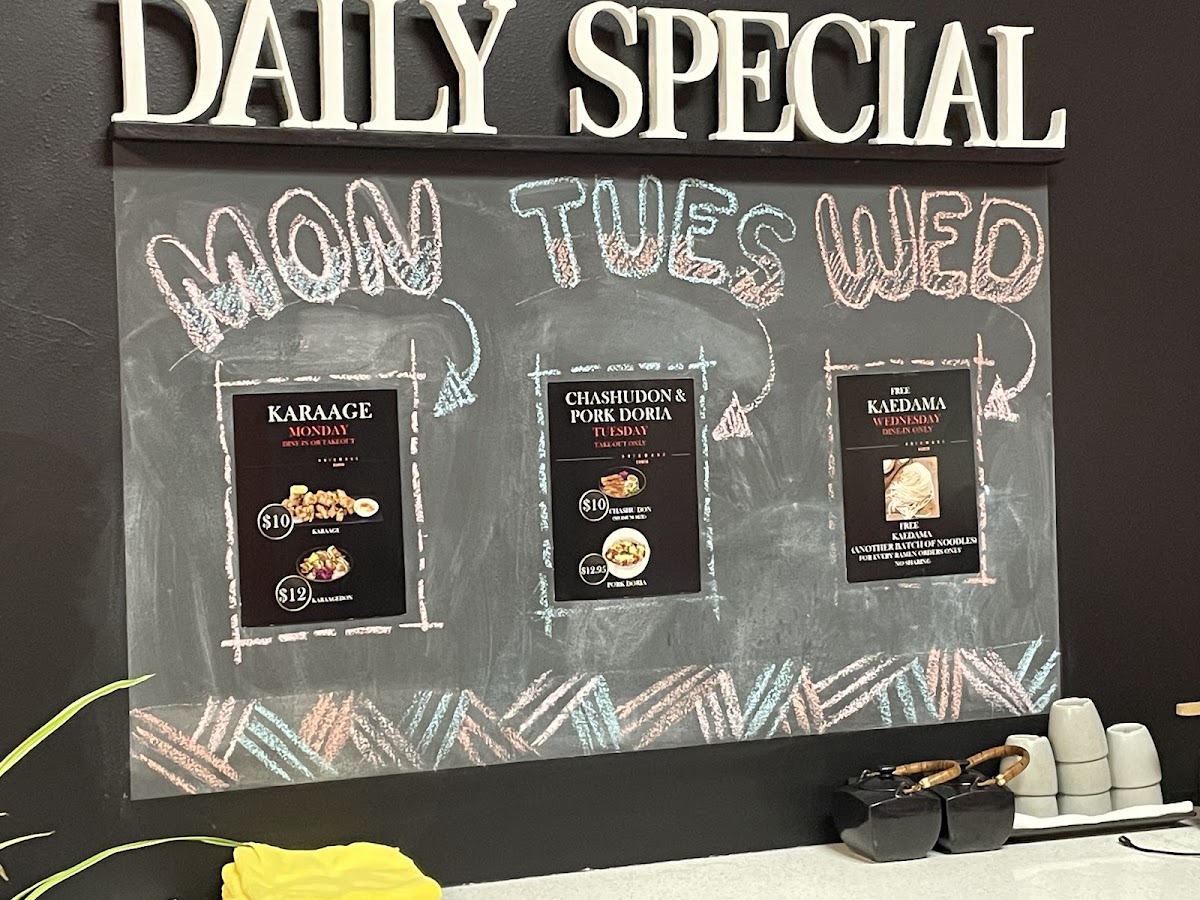 DAILY SPECIAL
MON
KARAAGE
MONDAY
DINE-IN OR TAKEOUT
$10
KARAAGE
$12
KARAAGEDON
TUES
CHASHUDON &
PORK DORIA
TUESDAY
TAKE-OUT ONLY
$10
CHASHU DON
(MEDIUM SIZE)
$12.95
PORK DORIA
WED
FREE
KAEDAMA
WEDNESDAY
DINE-IN ONLY
FREE
KAEDAMA
(ANOTHER BATCH OF NOODLES)
FOR EVERY RAMEN ORDERS ONLY
NO SHARING